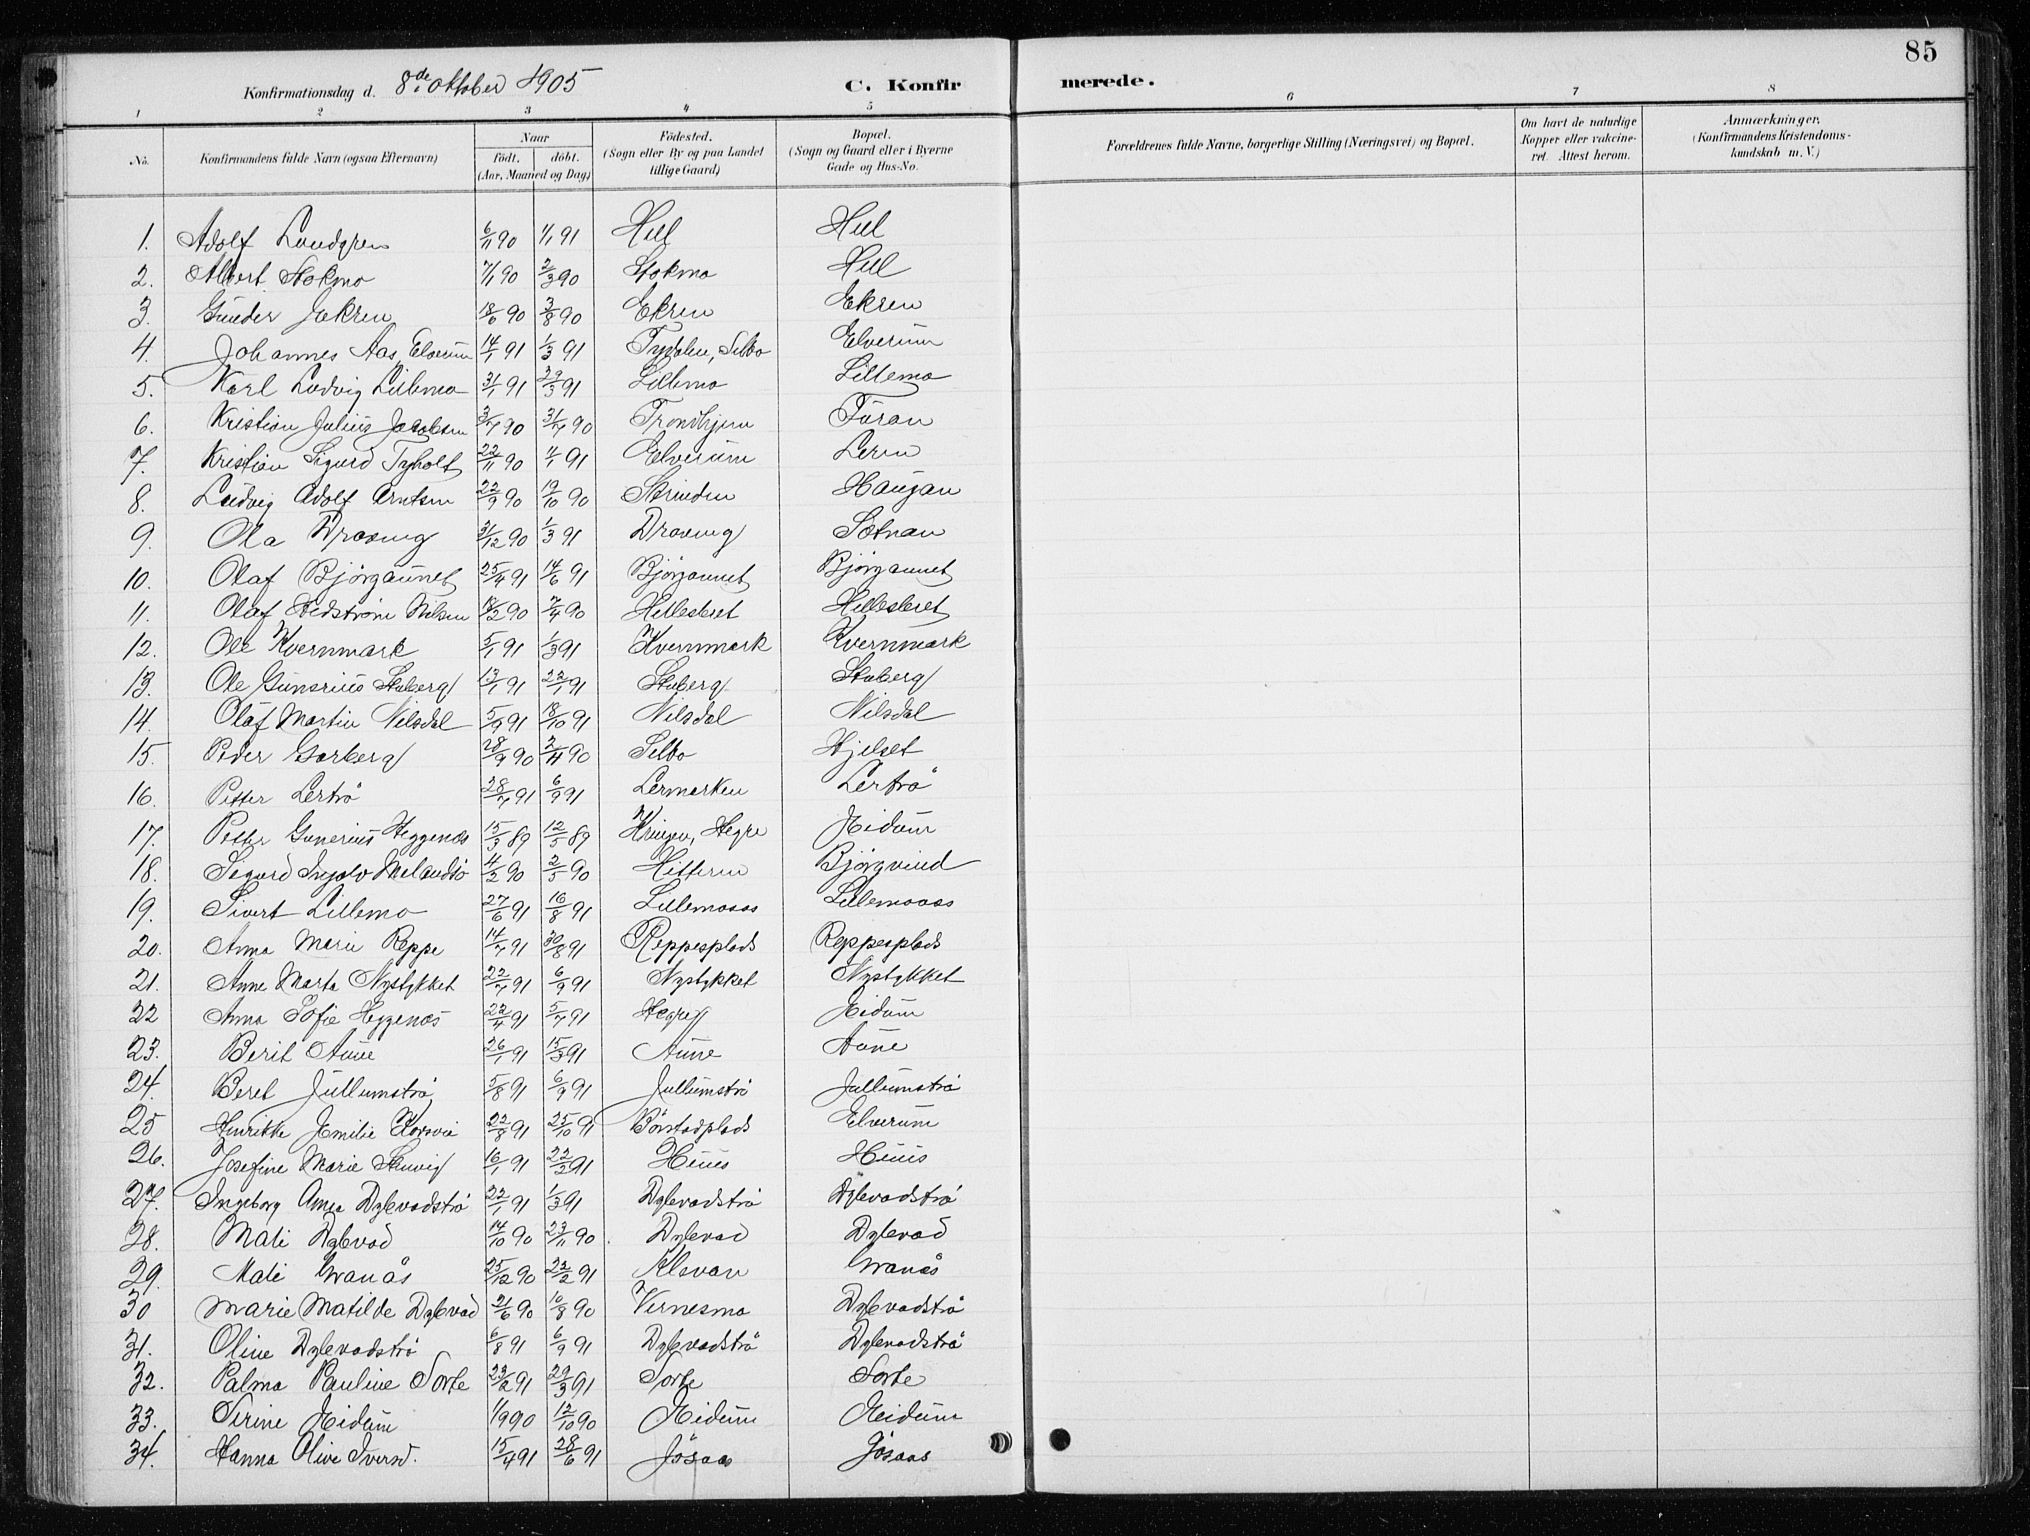 85
Konfirmationsdag d. 8de oktober 1905 C. Konfirmerede.
1 2 3 4 5 6 7 8
No. Konfirmandens fulde Navn (ogsaa Efternavn) Naar født. døbt. (Aar, Maaned og Dag) Fødested. (Sogn eller By og paa Landet tillige Gaard) Bopæl. (Sogn og Gaard eller i Byerne Gade og Hus-No. Forældrenes fulde Navne, borgerlige Stilling (Næringsvei) og Bopæl. Om havt de naturlige Kopper eller vakcineret. Attest herom. Anmærkninger. (Konfirmandens Kristendomskundskab m. V.)
1. Adolf Lundgren 6/11 90 1/1 91 Hell Hell
2. Albert Stokmo 7/1 90 2/3 90 Stokmo Hell
3. Gunder Ekren 18/6 90 3/8 90 Ekren Ekren
4. Johannes Aas Elverum 14/1 91 1/3 91 Tydalen, Selbo Elverum
5. Karl Ludvig Lillemo 31/1 91 29/3 91 Lillemo Lillemo
6. Kristian Julius Jacobsen 3/7 90 31/7 90 Trondhjem Turan
7. Kristian Sigurd Tyholt 22/11 90 4/1 91 Elverum Leren
8. Ludvig Adolf Arntsen 22/9 90 19/10 90 Strinden Haugan
9. Ola Draving 31/12 90 1/3 91 Draving Sætnan
10. Olaf Bjørgaunet 25/4 91 14/6 91 Bjørgaunet Bjørgaunet
11. Olaf Hedstrøm Nilsen 18/2 90 7/4 90 Hellesteret Hellesteret
12. Ole Kvernmark 5/1 91 1/3 91 Kvernmark Kvernmark
13. Ole Gunerius Stuberg 13/1 91 22/1 91 Stuberg Stuberg
14. Olaf Martin Nilsdal 5/9 91 18/10 91 Nilsdal Nilsdal
15 Peder Garberg 28/9 90 2/11 90 Selbo Hjelset
16. Petter Lertrø 28/7 91 6/9 91 Lermarken Lertrø
17. Petter Gunerius Heggenæs 15/3 89 12/5 89 Kringen, Hegre Eidum
18. Sigurd Ingolv Melandsø 4/2 90 2/5 90 Hitteren Bjørgvind
19. Sivert Lillemo 27/6 91 16/8 91 Lillemoaas Lillemoaas
20. Anna Marie Reppe 14/7 91 30/8 91 Reppesplads Reppesplads
21. Anne Marta Nystykket 22/7 91 6/9 91 Nystykket Nystykket
22 Anna Sofie Heggenæs 22/4 91 5/7 91 Hegre Eidum
23. Berit Aune 26/1 91 15/3 91 Aune Aune
24. Beret Jullumstrø 5/8 91 6/9 91 Jullumstrø Jullumstrø
25 Henrikke Emilie Korsvei 22/8 91 25/10 91 Børstadplads Elverum
26. Josefine Marie Stuvig 16/1 91 22/2 91 Huus Huus
27. Ingeborg Anna Dylevadstrø 22/1 91 1/3 91 Dylevadstrø Dylevadstrø
28. Mali Dylevad 14/10 90 23/11 90 Dylevad Dylevad
29. Mali Granås 25/12 90 22/2 91 Klevan Granås
30 Marie Matilde Dylevad 21/6 90 10/8 90 Vernesmo Dylevadstrø
31. Oline Dylevadstrø 6/8 91 6/9 91 Dylevadstrø Dylevadstrø
32. Palma Pauline Sorte 23/2 91 29/3 91 Sorte Sorte
33. Sirine Eidum 1/9 90 12/10 90 Eidum Eidum
34. Hanna Olive Iversd. 15/4 91 28/6 91 Jøsaas Jøsaas